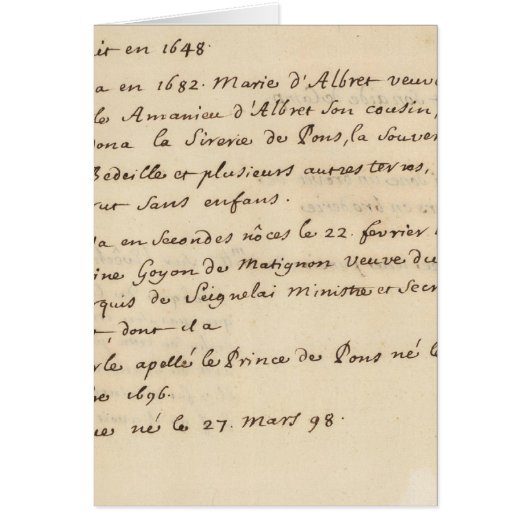 it en 1648.
a en 1682. Marie d'Albret veuve
le Amanieu d'Albret son cousin,
ona la Sirerie de Pons, la Souver
Bedeille et plusieurs autres terres,
ut Sans enfans.
a en Secondes nôces le 22. fevrier
ine Goyon de Matignon veuve du
rquis de Seignelai Ministre et Secr
t dont il a
rle apellé le Prince de Pons né le
e 1696.
ue né le 27. Mars 98.